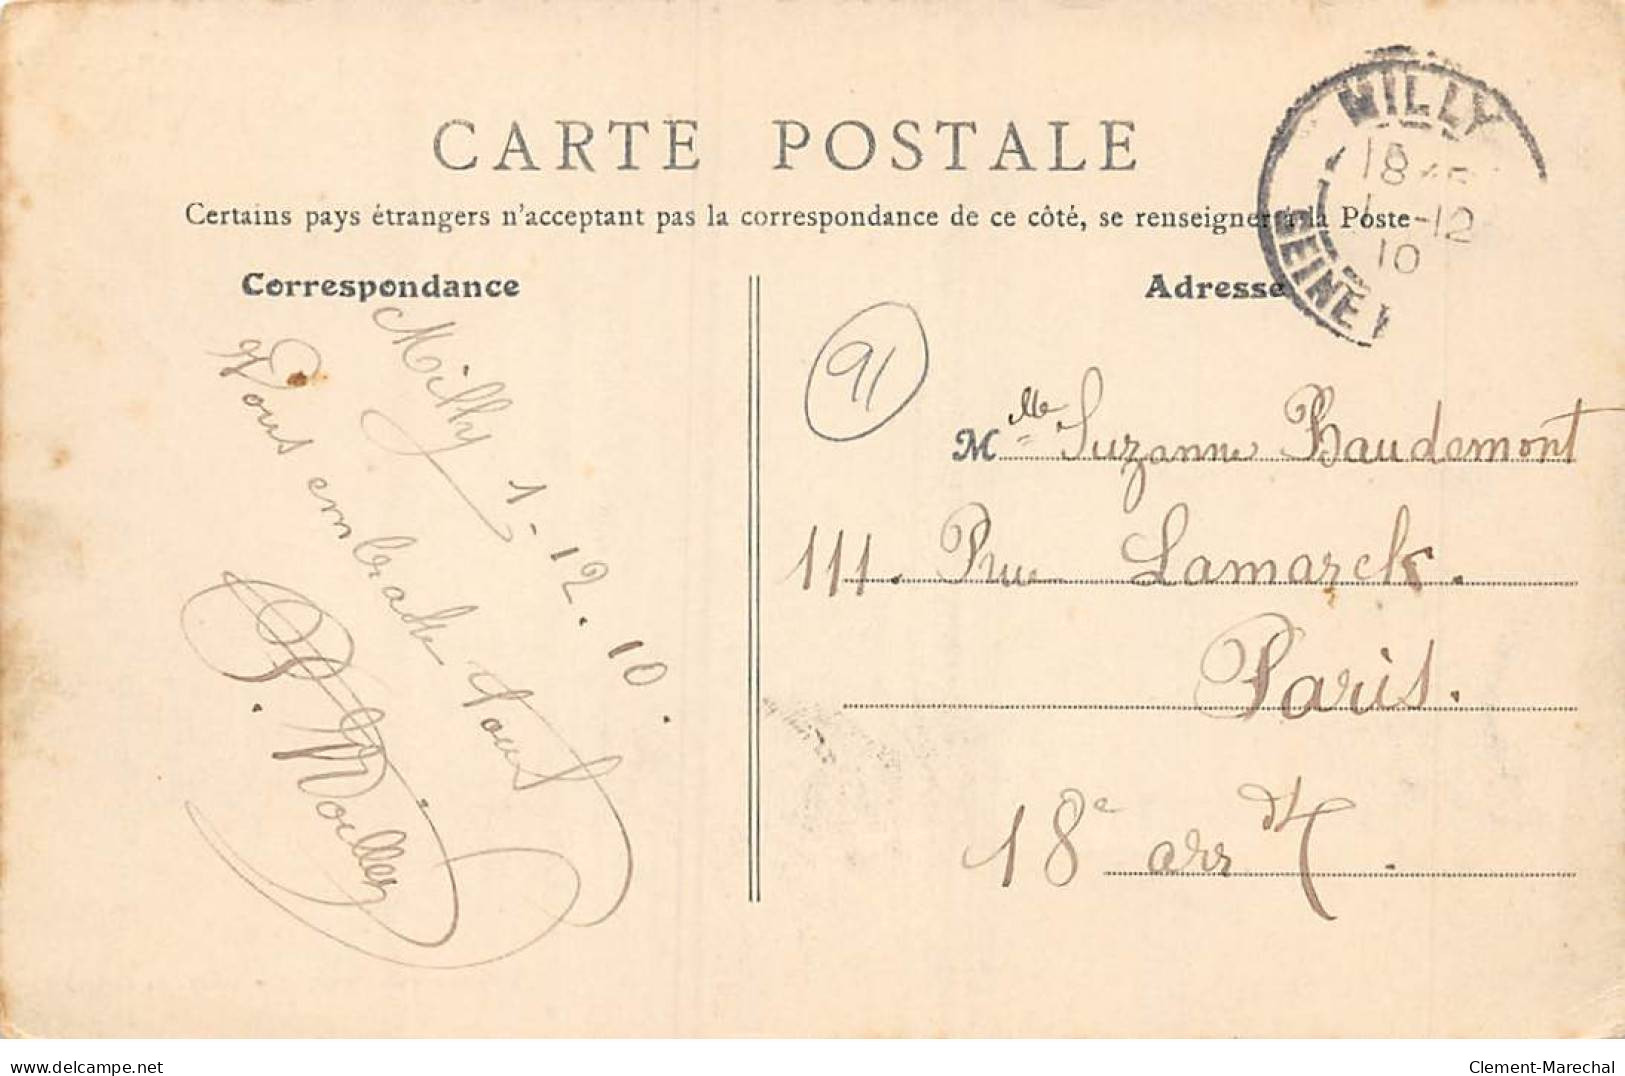 CARTE POSTALE
Certains pays étrangers n'acceptant pas la correspondance de ce côté, se renseigner à la Poste
Correspondance
Adresse
MILLY
18
1-12
10
SEINE
Milly 1-12.10.
Vous embrasse tous
P. Moiller
91
Mlle Suzanne Baudemont
111. Rue Lamarck.
Paris.
18e arrdt.
delcampe.net
Clement-Marechal